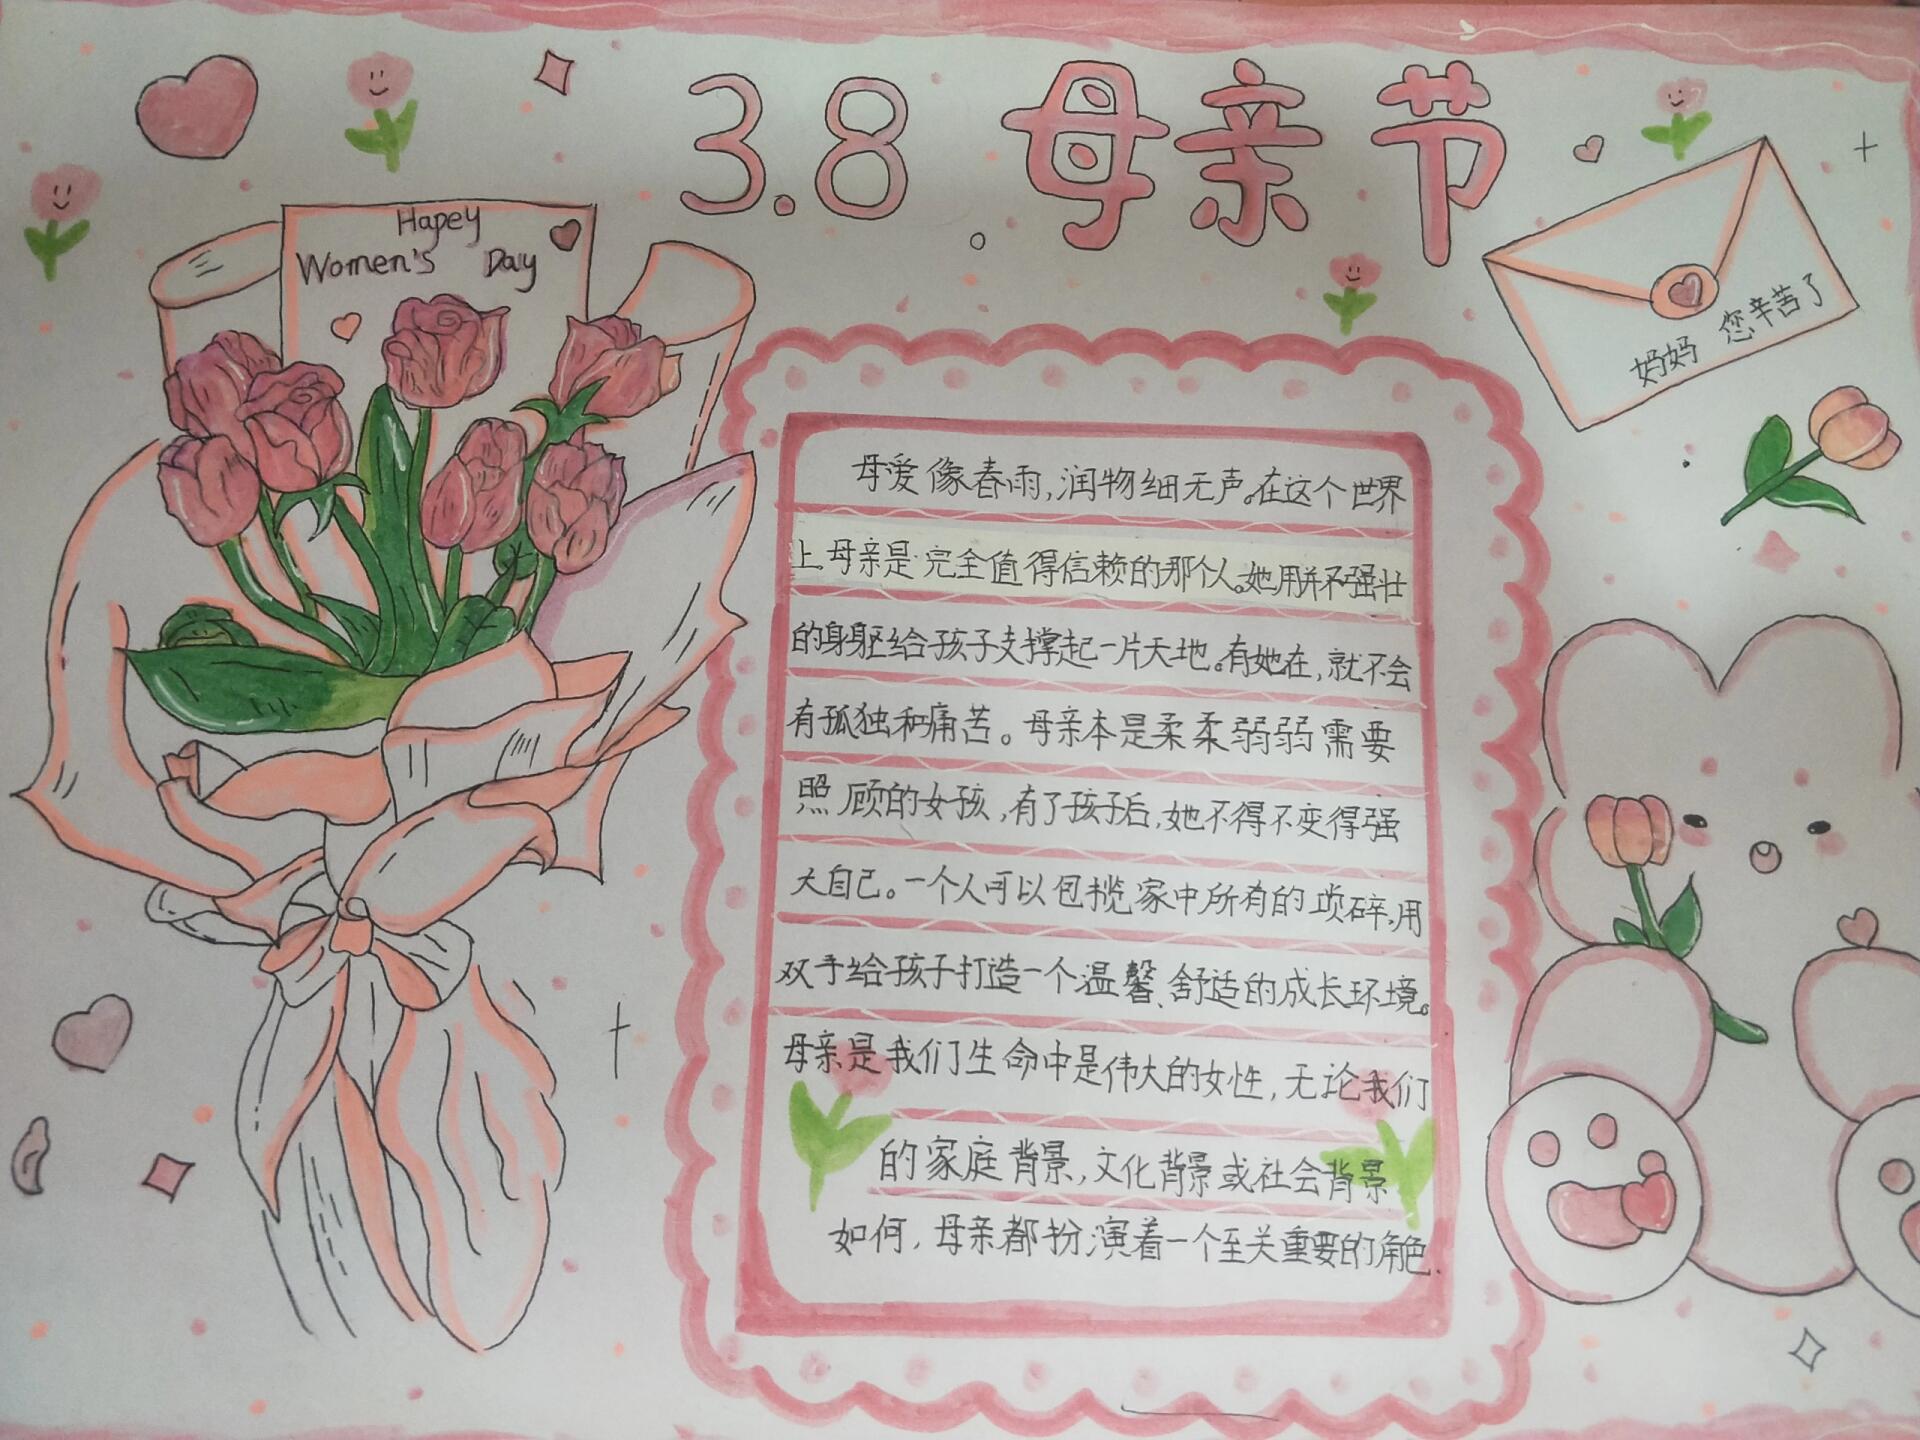 3.8 母亲节
Hapey
Women's Day
妈妈 您辛苦了
母爱像春雨,润物细无声。在这个世界
上母亲是完全值得信赖的那个人。她用并不强壮
的身躯给孩子支撑起一片天地。有她在,就不会
有孤独和痛苦。母亲本是柔柔弱弱需要
照顾的女孩,有了孩子后,她不得不变得强
大自己。一个人可以包揽家中所有的琐碎,用
双手给孩子打造一个温馨、舒适的成长环境。
母亲是我们生命中是伟大的女性,无论我们
的家庭背景,文化背景或社会背景
如何,母亲都扮演着一个至关重要的角色.